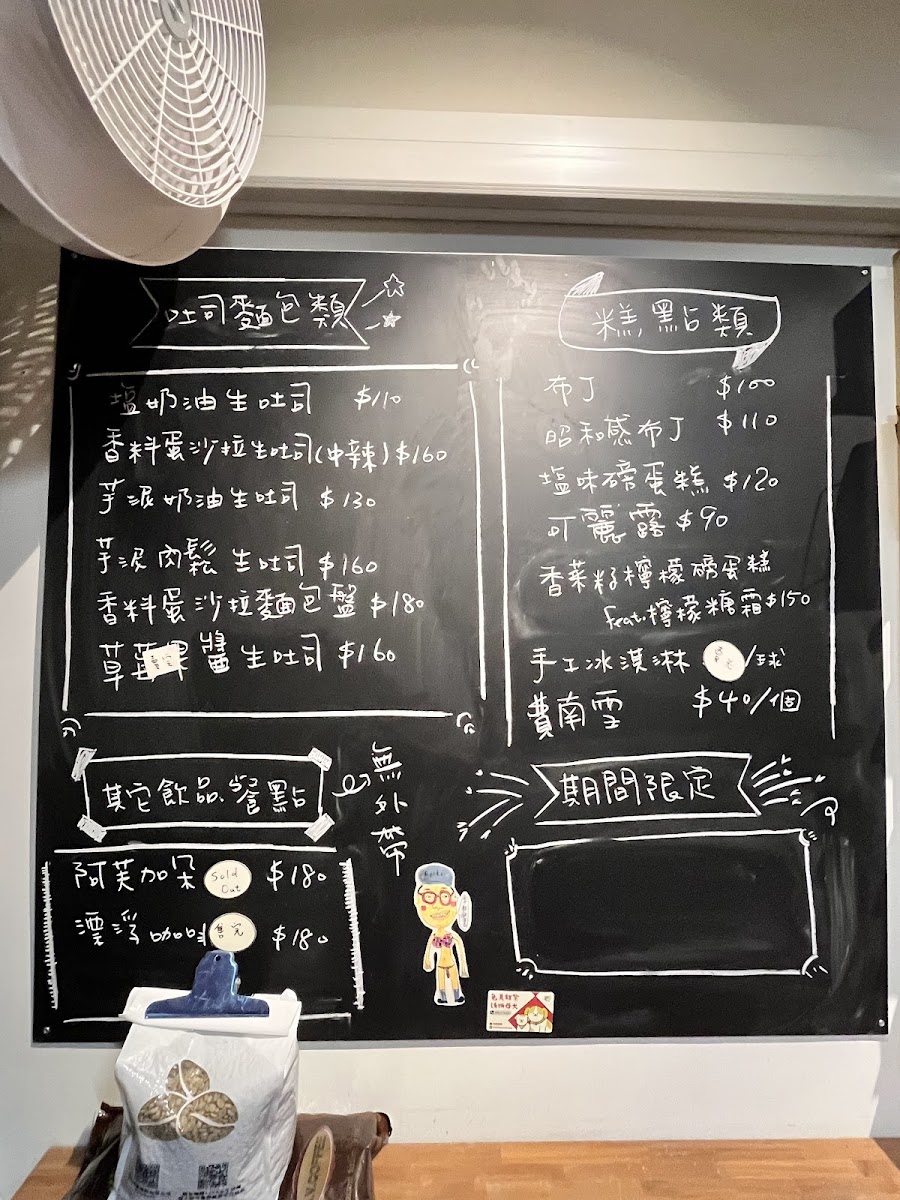 吐司麵包類
塩奶油生吐司 $110
香料蛋沙拉生吐司(中辣)$160
芋泥奶油生吐司 $130
芋泥肉鬆生吐司 $160
香料蛋沙拉麵包盤 $180
草莓果醬生吐司 $160
售完
糕點類
布丁 $100
昭和感布丁 $110
塩味磅蛋糕 $120
可麗露 $90
香菜籽檸檬磅蛋糕
feat.檸檬糖霜$150
手工冰淇淋 售完/球
費南雪 $40/個
其它飲品、餐點
無外帶
阿芙加朵 Sold Out $180
漂浮咖啡 售完 $180
期間限定